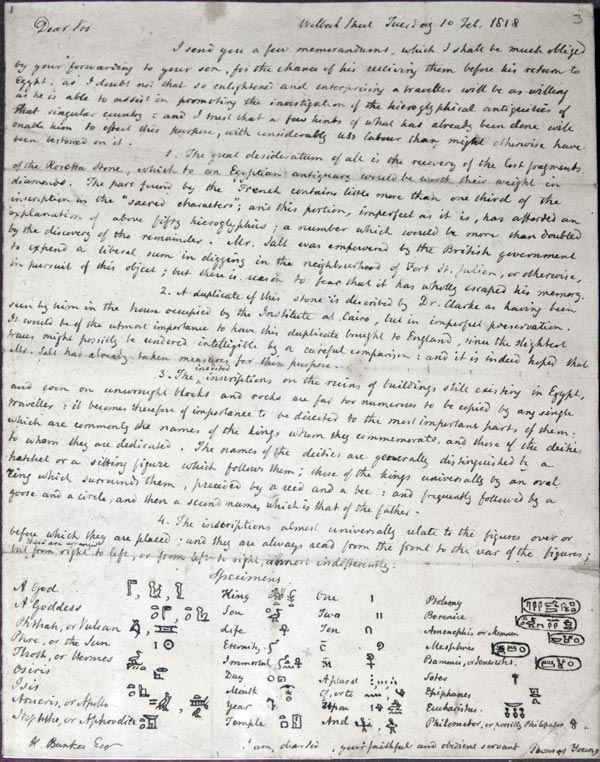 3
Welbeck Street Tuesday 10 Feb. 1818
Dear Sir
I send you a few memorandums, which I shall be much obliged
by your forwarding to your son, for the chance of his receiving them before his return to
Egypt, as I doubt not that so enlightened and enterprising a traveller will be as willing
as he is able to assist in promoting the investigation of the hieroglyphical antiquities of
that singular country: and I trust that a few hints of what has already been done will
enable him to effect this purpose, with considerably less labour than might otherwise have
been bestowed on it.
1. The great desideratum of all is the recovery of the lost fragments
of the Rosetta Stone, which to an Egyptian antiquary would be worth their weight in
diamonds. The part found by the French contains little more than one third of the
inscription in the "sacred character"; and this portion, imperfect as it is, has afforded an
explanation of above fifty hieroglyphics; a number which would be more than doubled
by the discovery of the remainder. Mr. Salt was empowered by the British government
to expend a liberal sum in digging in the neighbourhood of Fort St. Julien, or otherwise,
in pursuit of this object; but there is reason to fear that it has wholly escaped his memory.
2. A duplicate of this stone is described by Dr. Clarke as having been
seen by him in the house occupied by the Institute at Cairo, but in imperfect preservation.
It would be of the utmost importance to have this duplicate brought to England, since the slightest
traces might possibly be rendered intelligible by a careful comparison: and it is indeed hoped that
Mr. Salt has already taken measures for this purpose.
3. The inscriptions on the ruins of buildings still existing in Egypt,
and even on unwrought blocks and rocks are far too numerous to be copied by any single
traveller: it becomes therefore of importance to be directed to the most important parts of them:
which are commonly the names of the kings whom they commemorate, and those of the deities
to whom they are dedicated. The names of the deities are generally distinguished by a
hatchet or a sitting figure which follows them; those of the kings universally by an oval
ring which surrounds them, preceded by a reed and a bee: and frequently followed by a
goose and a circle, and then a second name, which is that of the father.
4. The inscriptions almost universally relate to the figures over or
before which they are placed; and they are always read from the front to the rear of the figures;
but from right to left, or from left to right, almost indifferently.
Specimens
A God King One Ptolemy
A Goddess Son Two Berenice
Phthah, or Vulcan Life Ten Amenophis, or Memnon
Phre, or the Sun Eternity C Mesphres
Thoth, or Hermes Immortal M
Osiris Day A plural Soter
Isis Month Epiphanes
Arueris, or Apollo Year Upon Eucharistus
Nephthe, or Aphrodite Temple And Philometor, or possibly Philopator
W Bankes Esqr I am, dear sir, your faithful and obedient servant Thomas Young